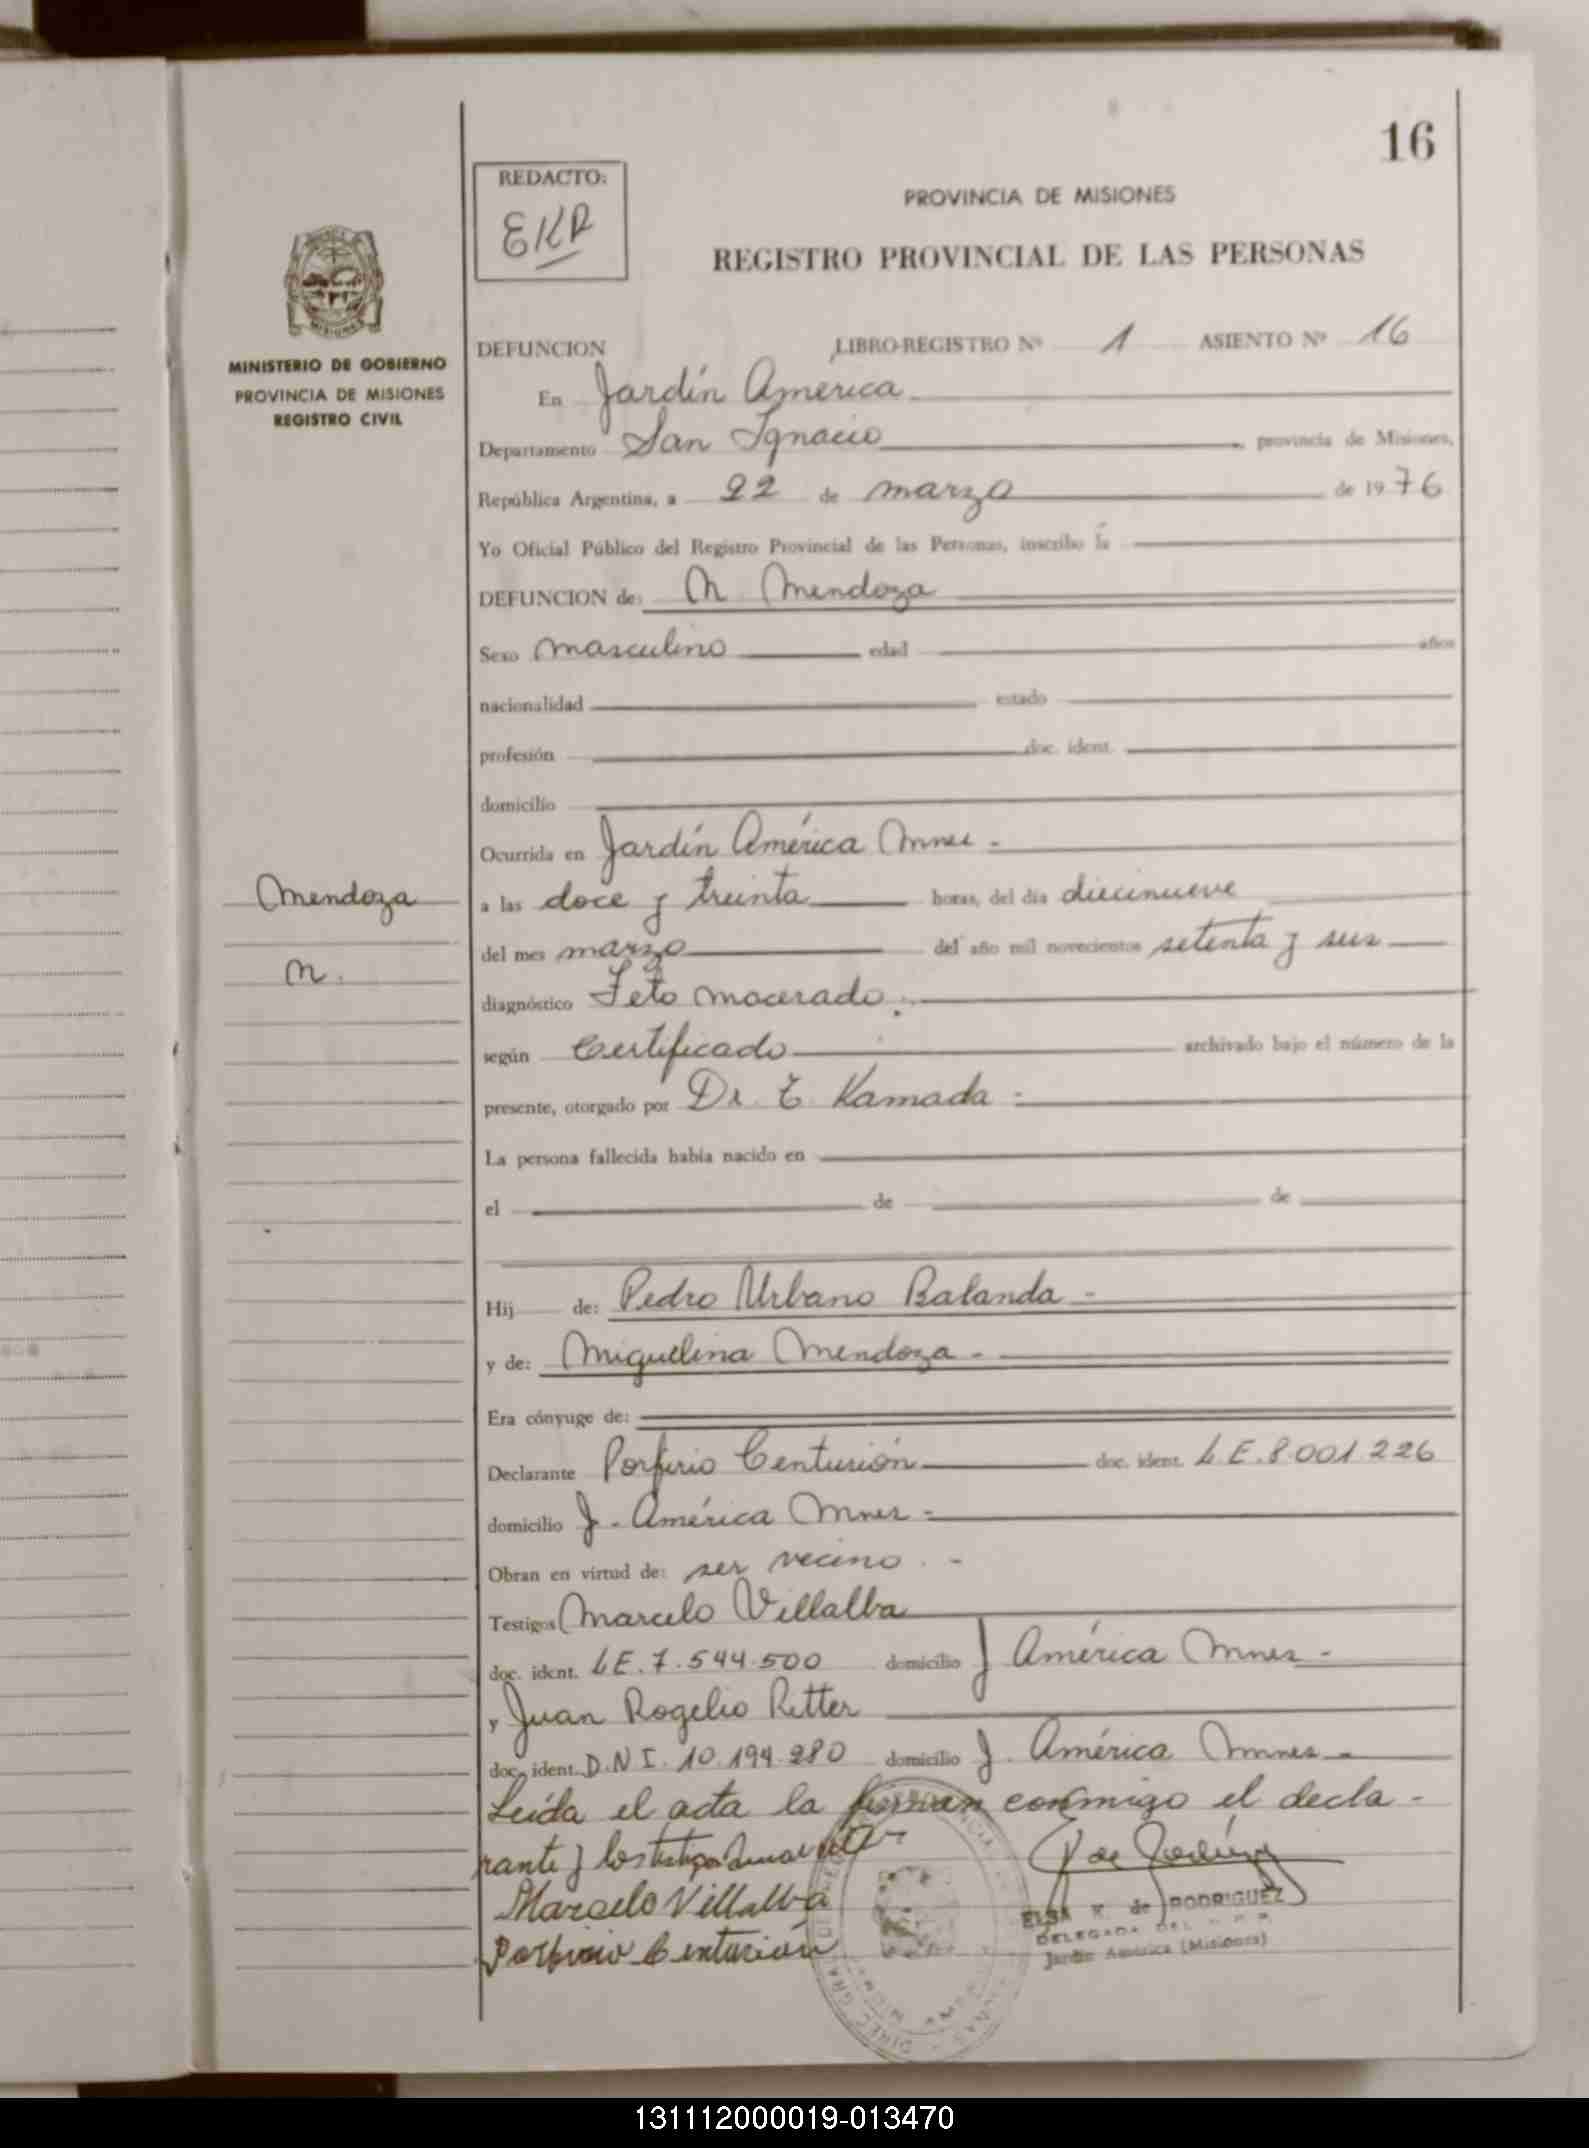 16
REDACTO:
EKR
PROVINCIA DE MISIONES
REGISTRO PROVINCIAL DE LAS PERSONAS
MISIONES
MINISTERIO DE GOBIERNO
PROVINCIA DE MISIONES
REGISTRO CIVIL
DEFUNCION LIBRO-REGISTRO Nº 1 ASIENTO Nº 16
En Jardín America
Departamento San Ignacio, provincia de Misiones,
República Argentina, a 22 de marzo de 1976
Yo Oficial Público del Registro Provincial de las Personas, inscribo la
DEFUNCION de: N. Mendoza
Sexo masculino edad años
nacionalidad estado
profesión doc. ident.
domicilio
Ocurrida en Jardín América Mnes -
Mendoza
N.
a las doce y treinta horas, del día diecinueve
del mes marzo del año mil novecientos setenta y seis
diagnóstico Feto macerado.
según Certificado archivado bajo el número de la
presente, otorgado por Dr. T. Kamada -
La persona fallecida había nacido en
el de de
Hij de: Pedro Urbano Balanda -
y de: Miguelina Mendoza -
Era cónyuge de:
Declarante Porfirio Centurión doc. ident. L E. 8.001.226
domicilio J. América Mnes -
Obran en virtud de: ser vecino. -
Testigos Marcelo Villalba
doc. ident. L E. 7.544.500 domicilio J América Mnes -
y Juan Rogelio Ritter
doc. ident. D.N I. 10.194.280 domicilio J. América Mnes -
Leída el acta la firman conmigo el decla -
rante y los testigos
Marcelo Villalba
Porfirio Centurión
ELSA K. de RODRIGUEZ
DELEGADA DEL R P P
Jardín América (Misiones)
131112000019-013470